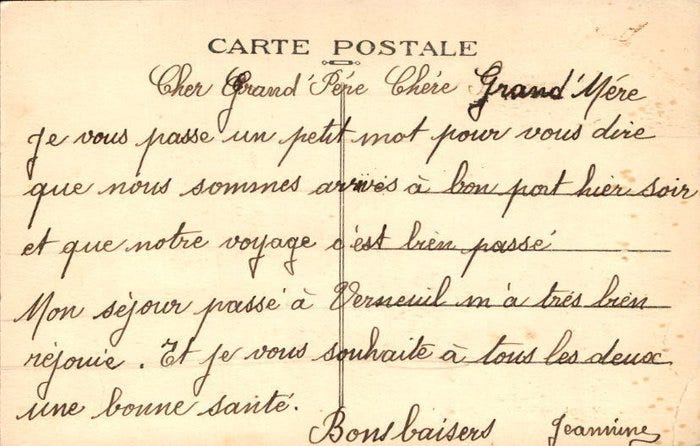 CARTE POSTALE
Cher Grand'Père Chére Grand'Mére
Je vous passe un petit mot pour vous dire
que nous sommes arrivés à bon port hier soir
et que notre voyage c'est bien passé
Mon séjour passé à Verneuil m'a trés bien
réjouie. Et je vous souhaite à tous les deux
une bonne santé.
Bons baisers Jeannine